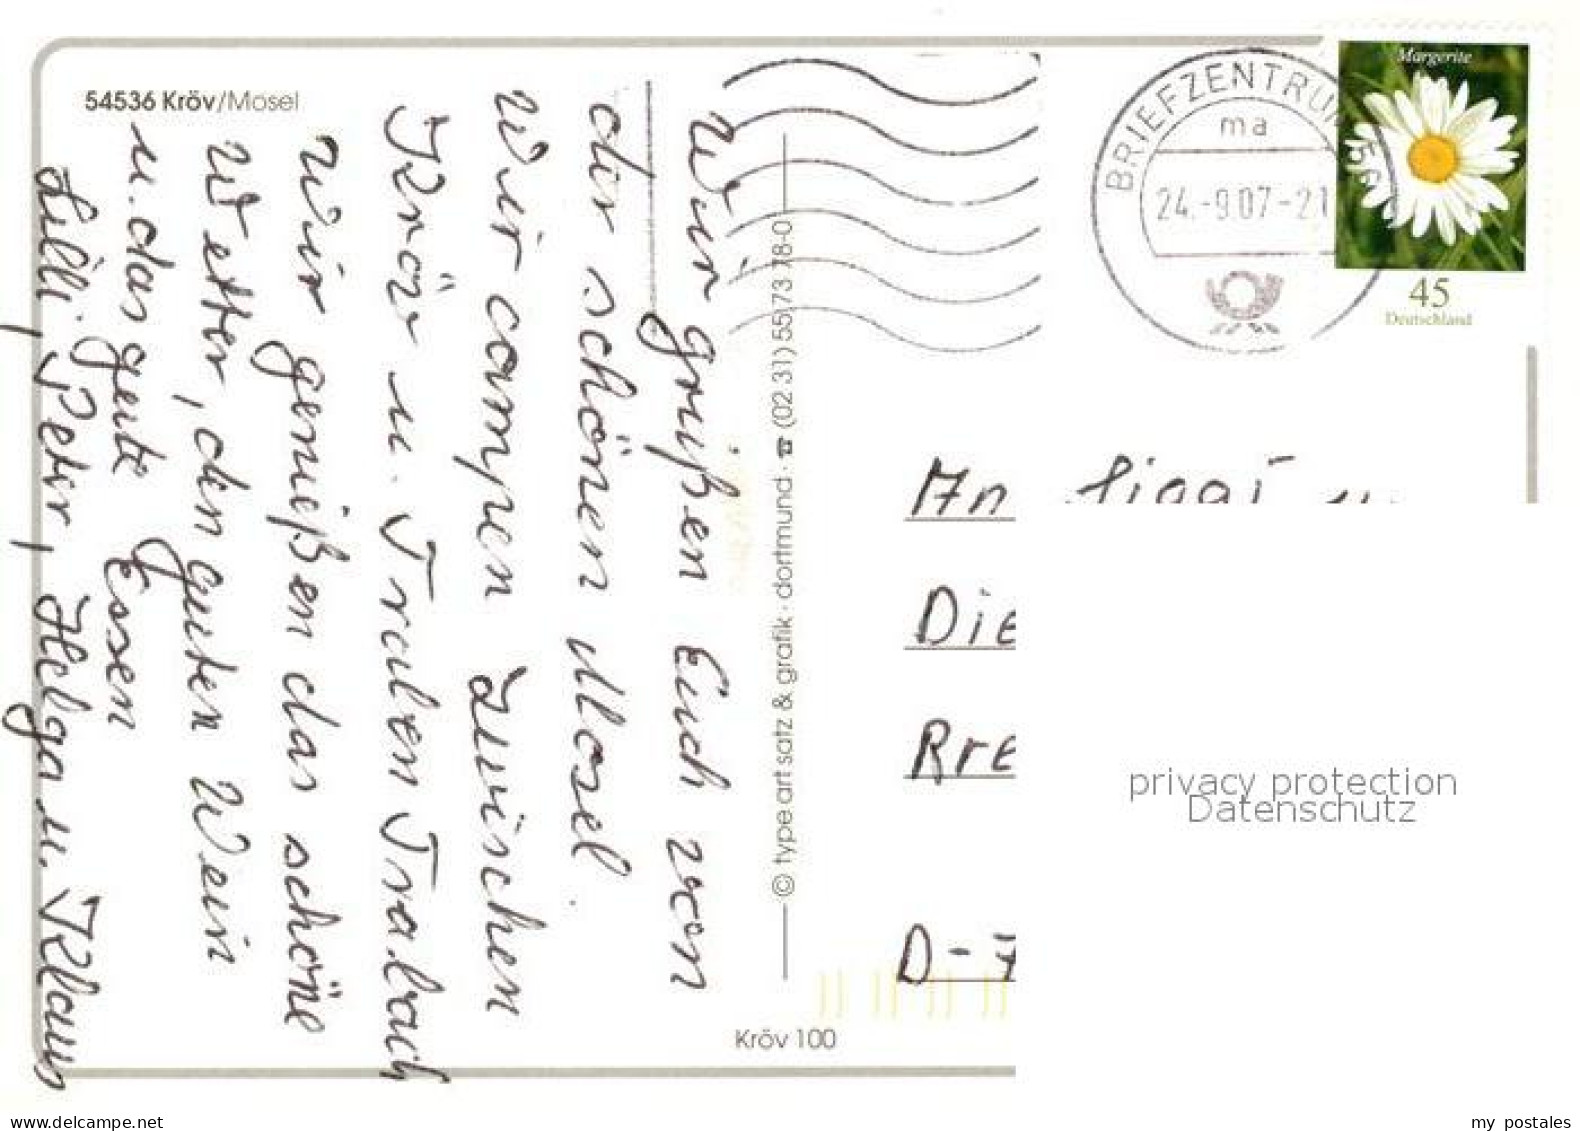 54536 Kröv/Mosel
Wir grüßen Euch von
der schönen Mosel.
Wir campen zwischen
Kröv u. Traben Trabach
Wir genießen das schöne
Wetter, den guten Wein
u. das gute Essen
Lilli, Peter, Helga u. Klaus
© type art satz & grafik · dortmund · ☎ (02 31) 55 73 78-0
Kröv 100
BRIEFZENTRUM 56
ma
24.-9.07-21
Margerite
45
Deutschland
An Siggi u.
Die
D-
privacy protection
Datenschutz
www.delcampe.net
my postales